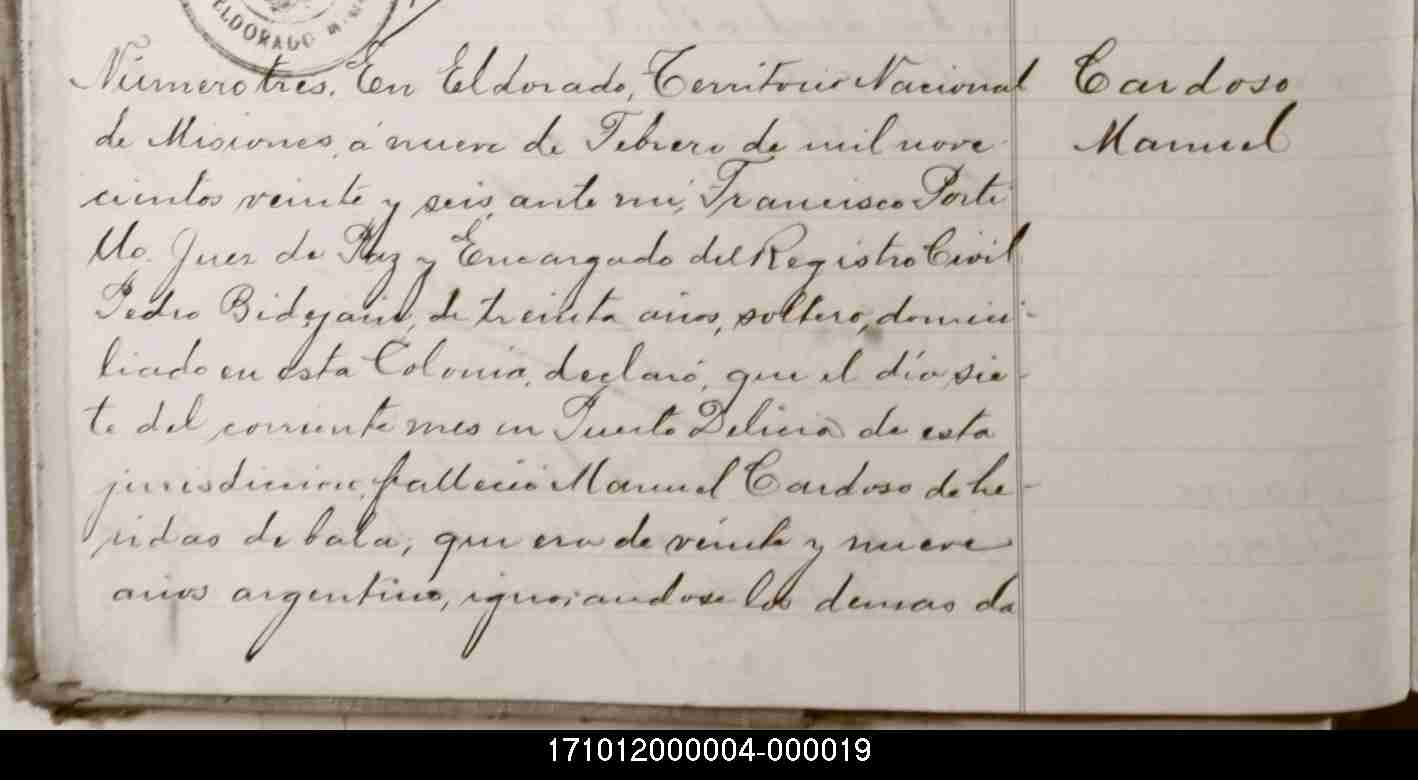 ELDORADO
Número tres. En Eldorado, Territorio Nacional
de Misiones, á nueve de Febrero de mil nove
cientos veinte y seis, ante mi, Francisco Porti
llo. Juez de Paz y Encargado del Registro Civil
Pedro Bidegain, de treinta años, soltero, domici-
liado en esta Colonia, declaró, que el día sie-
te del corriente mes en Puerto Delicia de esta
jurisdiccion, falleció Manuel Cardoso de he-
ridas de bala, que era de veinte y nueve
años argentino, ignorandose los demas da
Cardoso
Manuel
171012000004-000019